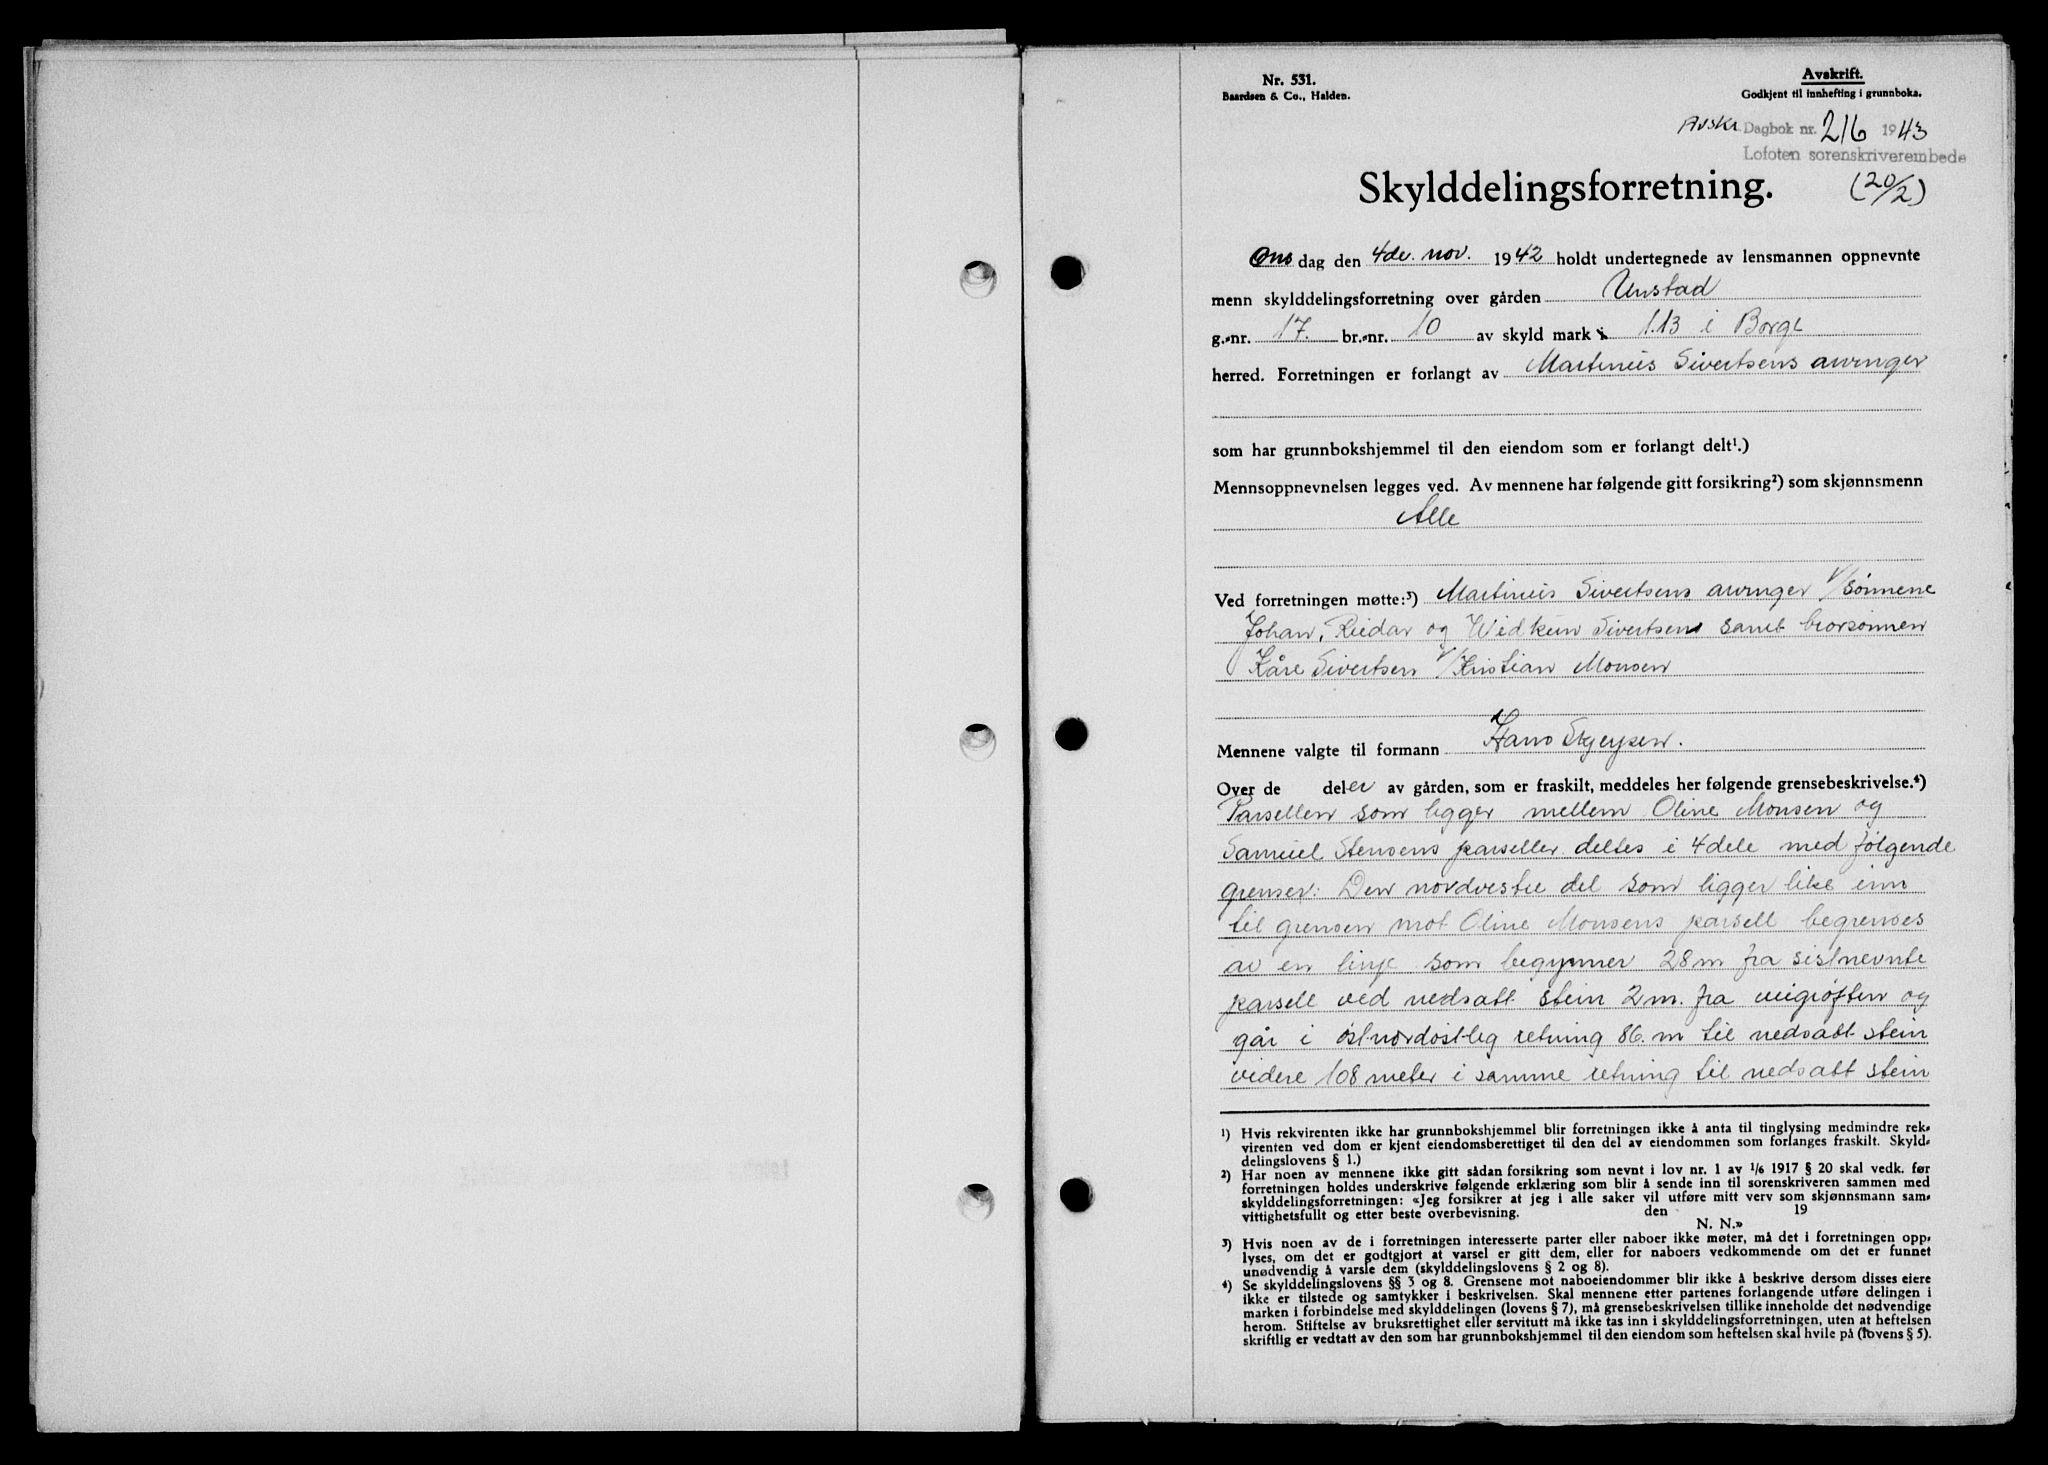 Nr. 531.
Baardsen & Co., Halden.
Avskrift.
Godkjent til innhefting i grunnboka.
Avskr. Dagbok nr. 216 1943
Lofoten sorenskriverembede
Skylddelingsforretning. (20/2)
Ons dag den 4de. nov. 1942 holdt undertegnede av lensmannen oppnevnte
menn skylddelingsforretning over gården Unstad
g.-nr. 17. br.-nr. 10 av skyld mark 1.13 i Borge
herred. Forretningen er forlangt av Martinus Sivertsens arvinger
som har grunnbokshjemmel til den eiendom som er forlangt delt¹.)
Mennsoppnevnelsen legges ved. Av mennene har følgende gitt forsikring²) som skjønnsmenn
Alle
Ved forretningen møtte:³) Martinus Sivertsens arvinger v/sønnene
Johan, Reidar og Widkun Sivertsen samt brorsønnen
Kåre Sivertsen v/Kristian Monsen
Mennene valgte til formann Hans
Over de deler av gården, som er fraskilt, meddeles her følgende grensebeskrivelse.⁴)
Parsellen som ligger mellem Oline Monsen og
Samuel Stensens parseller deltes i 4 dele med følgende
grenser: Den nordvestre del som ligger like inn
til grensen mot Oline Monsens parsell begrenses
av en linje som begynner 28 m fra sistnevnte
parsell ved nedsatt stein 2 m. fra veigrøften og
går i østnordøstleg retning 86. m til nedsatt stein
videre 108 meter i samme retning til nedsatt stein
¹) Hvis rekvirenten ikke har grunnbokshjemmel blir forretningen ikke å anta til tinglysing medmindre rek-
virenten ved dom er kjent eiendomsberettiget til den del av eiendommen som forlanges fraskilt. Skyld-
delingslovens § 1.)
²) Har noen av mennene ikke gitt sådan forsikring som nevnt i lov nr. 1 av 1/6 1917 § 20 skal vedk. før
forretningen holdes underskrive følgende erklæring som blir å sende inn til sorenskriveren sammen med
skylddelingsforretningen: «Jeg forsikrer at jeg i alle saker vil utføre mitt verv som skjønnsmann sam-
vittighetsfullt og etter beste overbevisning. den 19
N. N.»
³) Hvis noen av de i forretningen interesserte parter eller naboer ikke møter, må det i forretningen opp-
lyses, om det er godtgjort at varsel er gitt dem, eller for naboers vedkommende om det er funnet
unødvendig å varsle dem (skylddelingslovens § 2 og 8).
⁴) Se skylddelingslovens §§ 3 og 8. Grensene mot naboeiendommer blir ikke å beskrive dersom disses eiere
ikke er tilstede og samtykker i beskrivelsen. Skal mennene etter partenes forlangende utføre delingen i
marken i forbindelse med skylddelingen (lovens § 7), må grensebeskrivelsen tillike inneholde det nødvendige
herom. Stiftelse av bruksrettighet eller servitutt må ikke tas inn i skylddelingsforretningen, uten at heftelsen
skriftlig er vedtatt av den som har grunnbokshjemmel til den eiendom som heftelsen skal hvile på (lovens § 5).